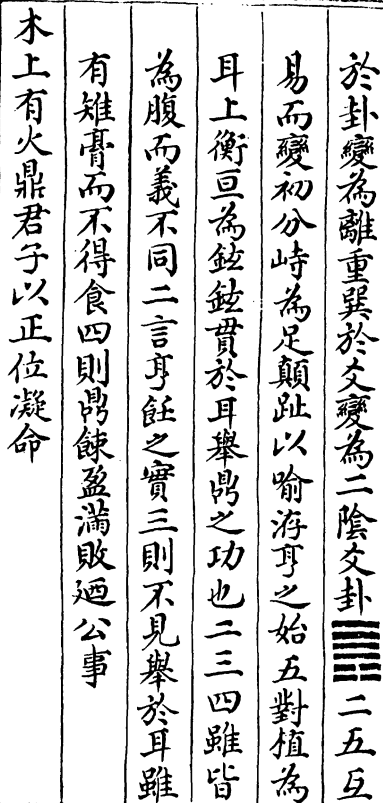 於卦變為離重巽於爻變為二陰爻卦䷠二五互
易而變初分峙為足顛趾以喻洊亨之始五對植為
耳上衡亘為鉉鉉貫於耳舉鼎之功也二三四雖皆
為腹而義不同二言亨飪之實三則不見舉於耳雖
有雉膏而不得食四則鼎餗盈滿敗廼公事
木上有火鼎君子以正位凝命